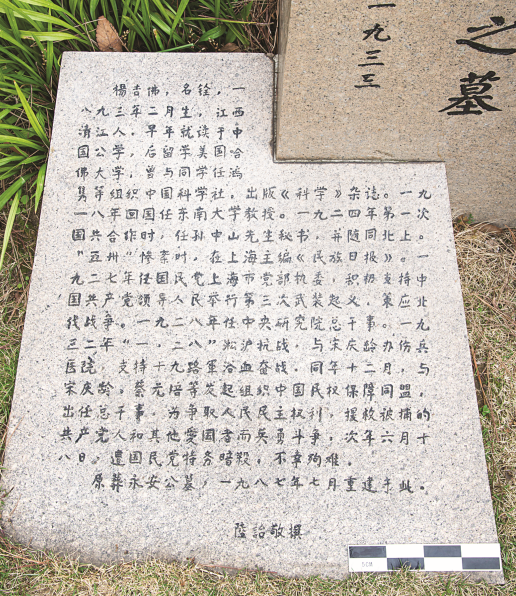 一九三三
之墓
楊杏佛，名铨，一
八九三年二月生，江西
清江人。早年就读于中
国公学，后留学美国哈
佛大学，曾与同学任鸿
隽等组织中国科学社，出版《科学》杂誌。一九
一八年回国任东南大学教授。一九二四年第一次
国共合作时，任孙中山先生秘书，并随同北上。
“五卅”惨案时，在上海主编《民族日报》。一
九二七年任国民党上海市党部执委，积极支持中
国共产党领导人民举行第三次武装起义，策应北
伐战争。一九二八年任中央研究院总干事。一九
三二年“一，二八”淞沪抗战，与宋庆龄办伤兵
医院，支持十九路軍浴血奋战。同年十二月，与
宋庆龄，蔡元培等发起组织中国民权保障同盟，
出任总干事，为争取人民民主权利，援救被捕的
共产党人和其他爱国者而英勇斗争，次年六月十
八日，遭国民党特务暗殺，不幸殉难。
原葬永安公墓，一九八七年七月重建于此。
陸詒敬撰
5CM